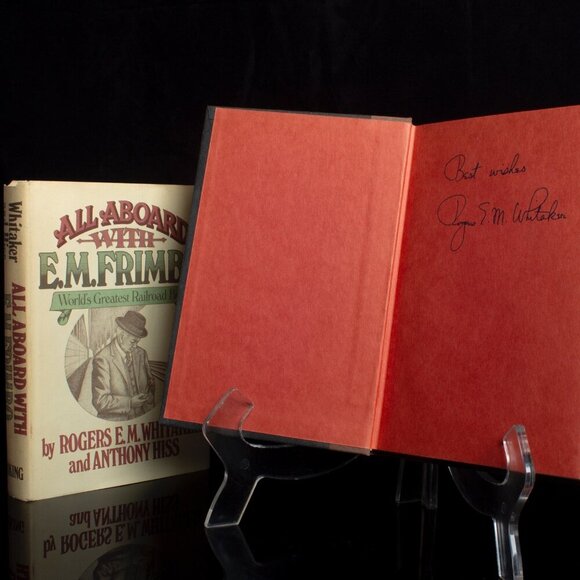 Whitaker
ALL ABOARD WITH
KING
ALL ABOARD
WITH
E.M. FRIMB
World's Greatest Railroad
by ROGERS E. M. WHITAK
and ANTHONY HISS
Best wishes
Rogers E. M. Whitaker